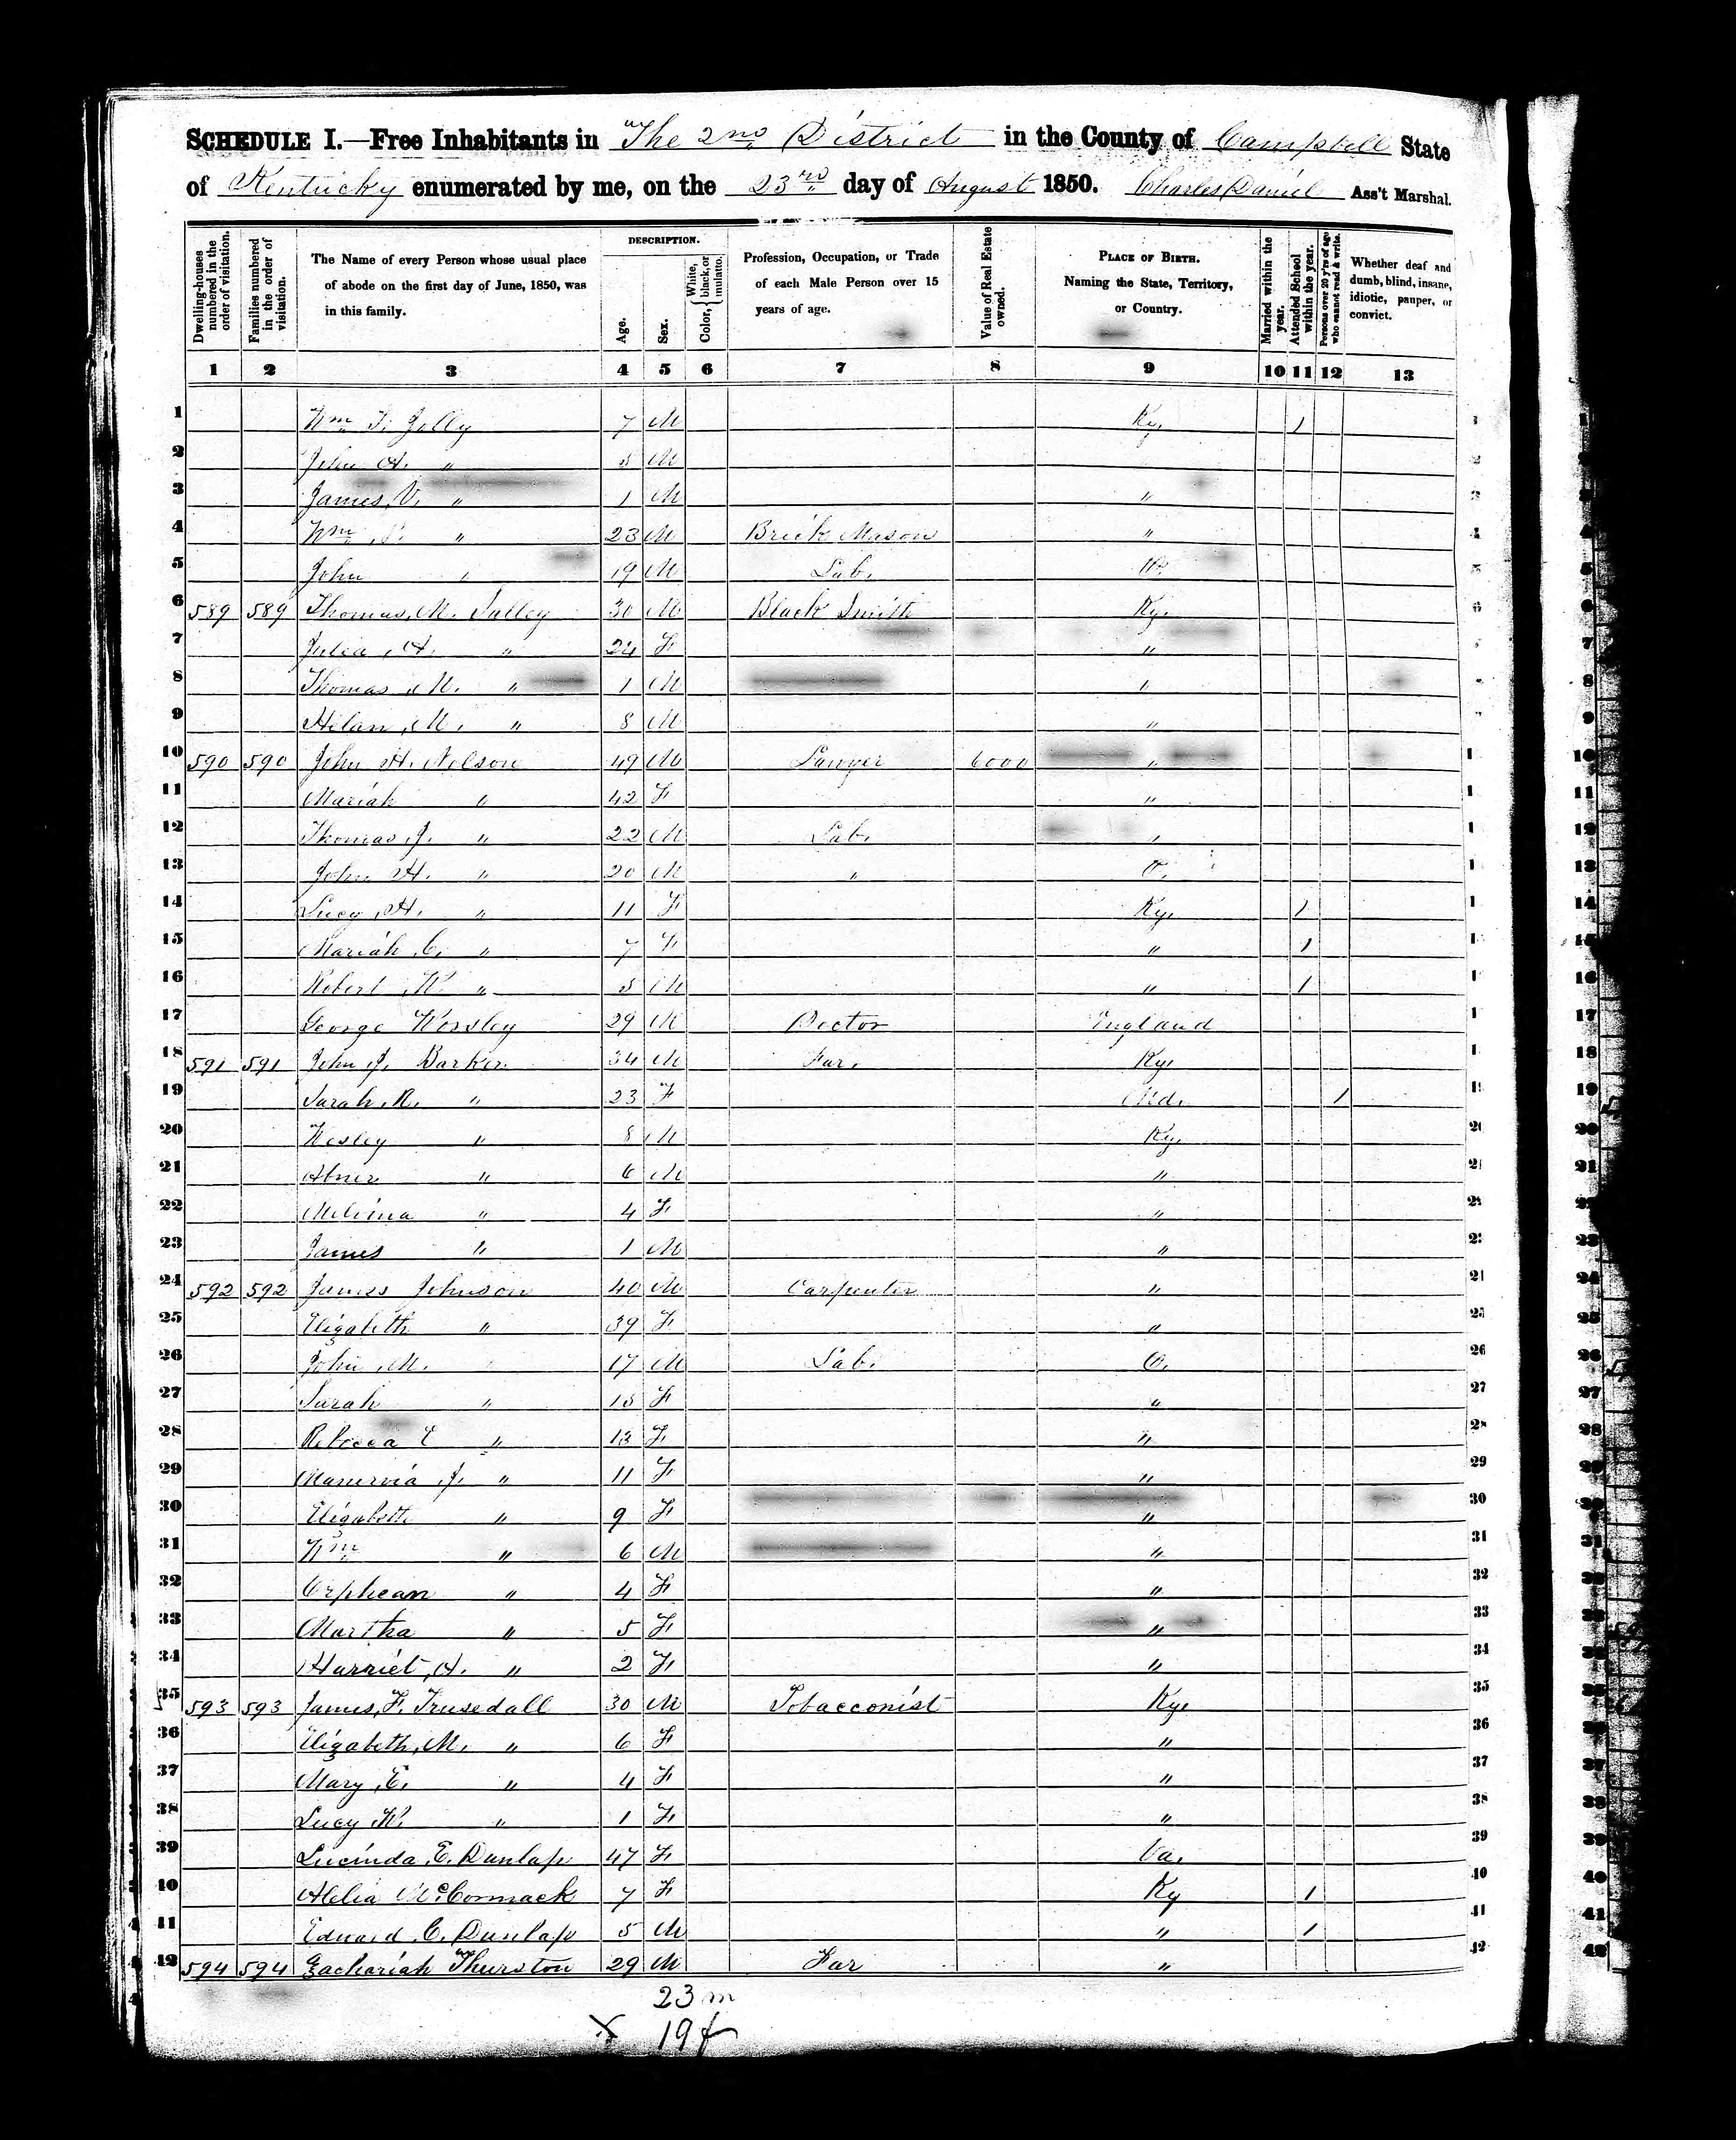 SCHEDULE I.—Free Inhabitants in "The 2nd District in the County of Campbell State
of Kentucky enumerated by me, on the 23rd day of August 1850. Charles Daniel Ass't Marshal.
Dwelling-houses numbered in the order of visitation.
Families numbered in the order of visitation.
The Name of every Person whose usual place of abode on the first day of June, 1850, was in this family.
DESCRIPTION.
Age.
Sex.
Color, { White, black, or mulatto.
Profession, Occupation, or Trade of each Male Person over 15 years of age.
Value of Real Estate owned.
PLACE OF BIRTH. Naming the State, Territory, or Country.
Married within the year.
Attended School within the year.
Persons over 20 y'rs of age who cannot read & write.
Whether deaf and dumb, blind, insane, idiotic, pauper, or convict.
1 2 3 4 5 6 7 8 9 10 11 12 13
1 Wm Jolly 7 M Ky. 1
2 John A. " 5 M
3 James, V. " 1 M "
4 Wm " 23 M Brick Mason "
5 John " 19 M Lab. O.
6 589 589 Thomas, M. 30 M Black Smith Ky.
7 Julia, A. " 24 F "
8 Thomas, M. " 1 M "
9 Hilan, M. " 8 M "
10 590 590 John H. Nelson 49 M Lawyer 6000 "
11 Mariah " 42 F "
12 Thomas, J. " 22 M Lab. "
13 John H. " 20 M " O.
14 Lucy, H. " 11 F Ky. 1
15 Mariah, C. " 7 F " 1
16 Robert, W. " 5 M " 1
17 George Worsley 29 M Doctor England
18 591 591 John J. Barker 34 M Far. Ky.
19 Sarah, R. " 23 F Md. 1
20 Wesley " 8 M Ky.
21 Abner " 6 M "
22 Melvina " 4 F "
23 James " 1 M "
24 592 592 James Johnson 40 M Carpenter "
25 Elizabeth " 39 F "
26 John, M. " 17 M Lab. O.
27 Sarah " 15 F "
28 Rebecca E " 13 F "
29 Manervia J. " 11 F "
30 Elizabeth " 9 F "
31 Wm " 6 M "
32 Orphean " 4 F "
33 Martha " 5 F "
34 Harriet, A. " 2 F "
35 593 593 James, F. Trusedall 30 M Tobacconist Ky.
36 Elizabeth, M. " 6 F "
37 Mary, E. " 4 F "
38 Lucy W. " 1 F "
39 Lucinda, E. Dunlap 47 F Va.
40 Alelia McCormack 7 F Ky 1
41 Edward C. Dunlap 5 M " 1
42 594 594 Zachariah Thurston 29 M Far "
23 m
x 19 f